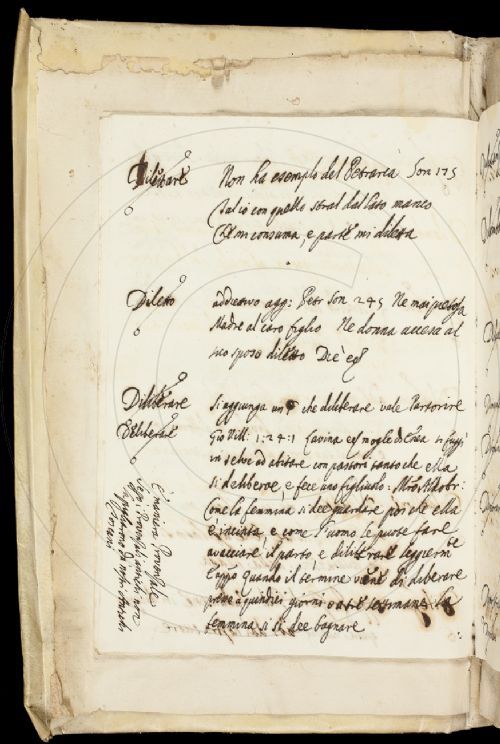 Dilettare Non ha esemplo del Petrarca Son 175
Tal io con quello stral dal lato manco
Che mi consuma, e parte mi diletta
Diletto addiettivo agg: Petr Son 245 Ne mai pietosa
Madre al caro figlio Ne donna accesa al
suo sposo diletto
Diliberare si aggiunga un che deliberare vale Partorire
Deliberare Gio Vill: 1:24:1 Lavina moglie di Enea si fuggì
in selve ad abitare con pastori tanto che ella
si diliberoe, e fece uno figliuolo:
Come la femmina si dee guardare poi che ella
è incinta, e come l'uomo le puote fare
avacciare il parto, e diliberare leggierm.te
Tappo quando il termine viene di deberare
prima quindici giorni o tre settimane la
femmina si si dee bagnare
È maniera Provenzale